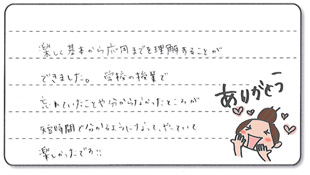 楽しく基本から応用までを理解することが
できました。学校の授業で
忘れていたことや分からなかったところが
短時間で分かるようになって、やっていて
楽しかったです!!
ありがとう